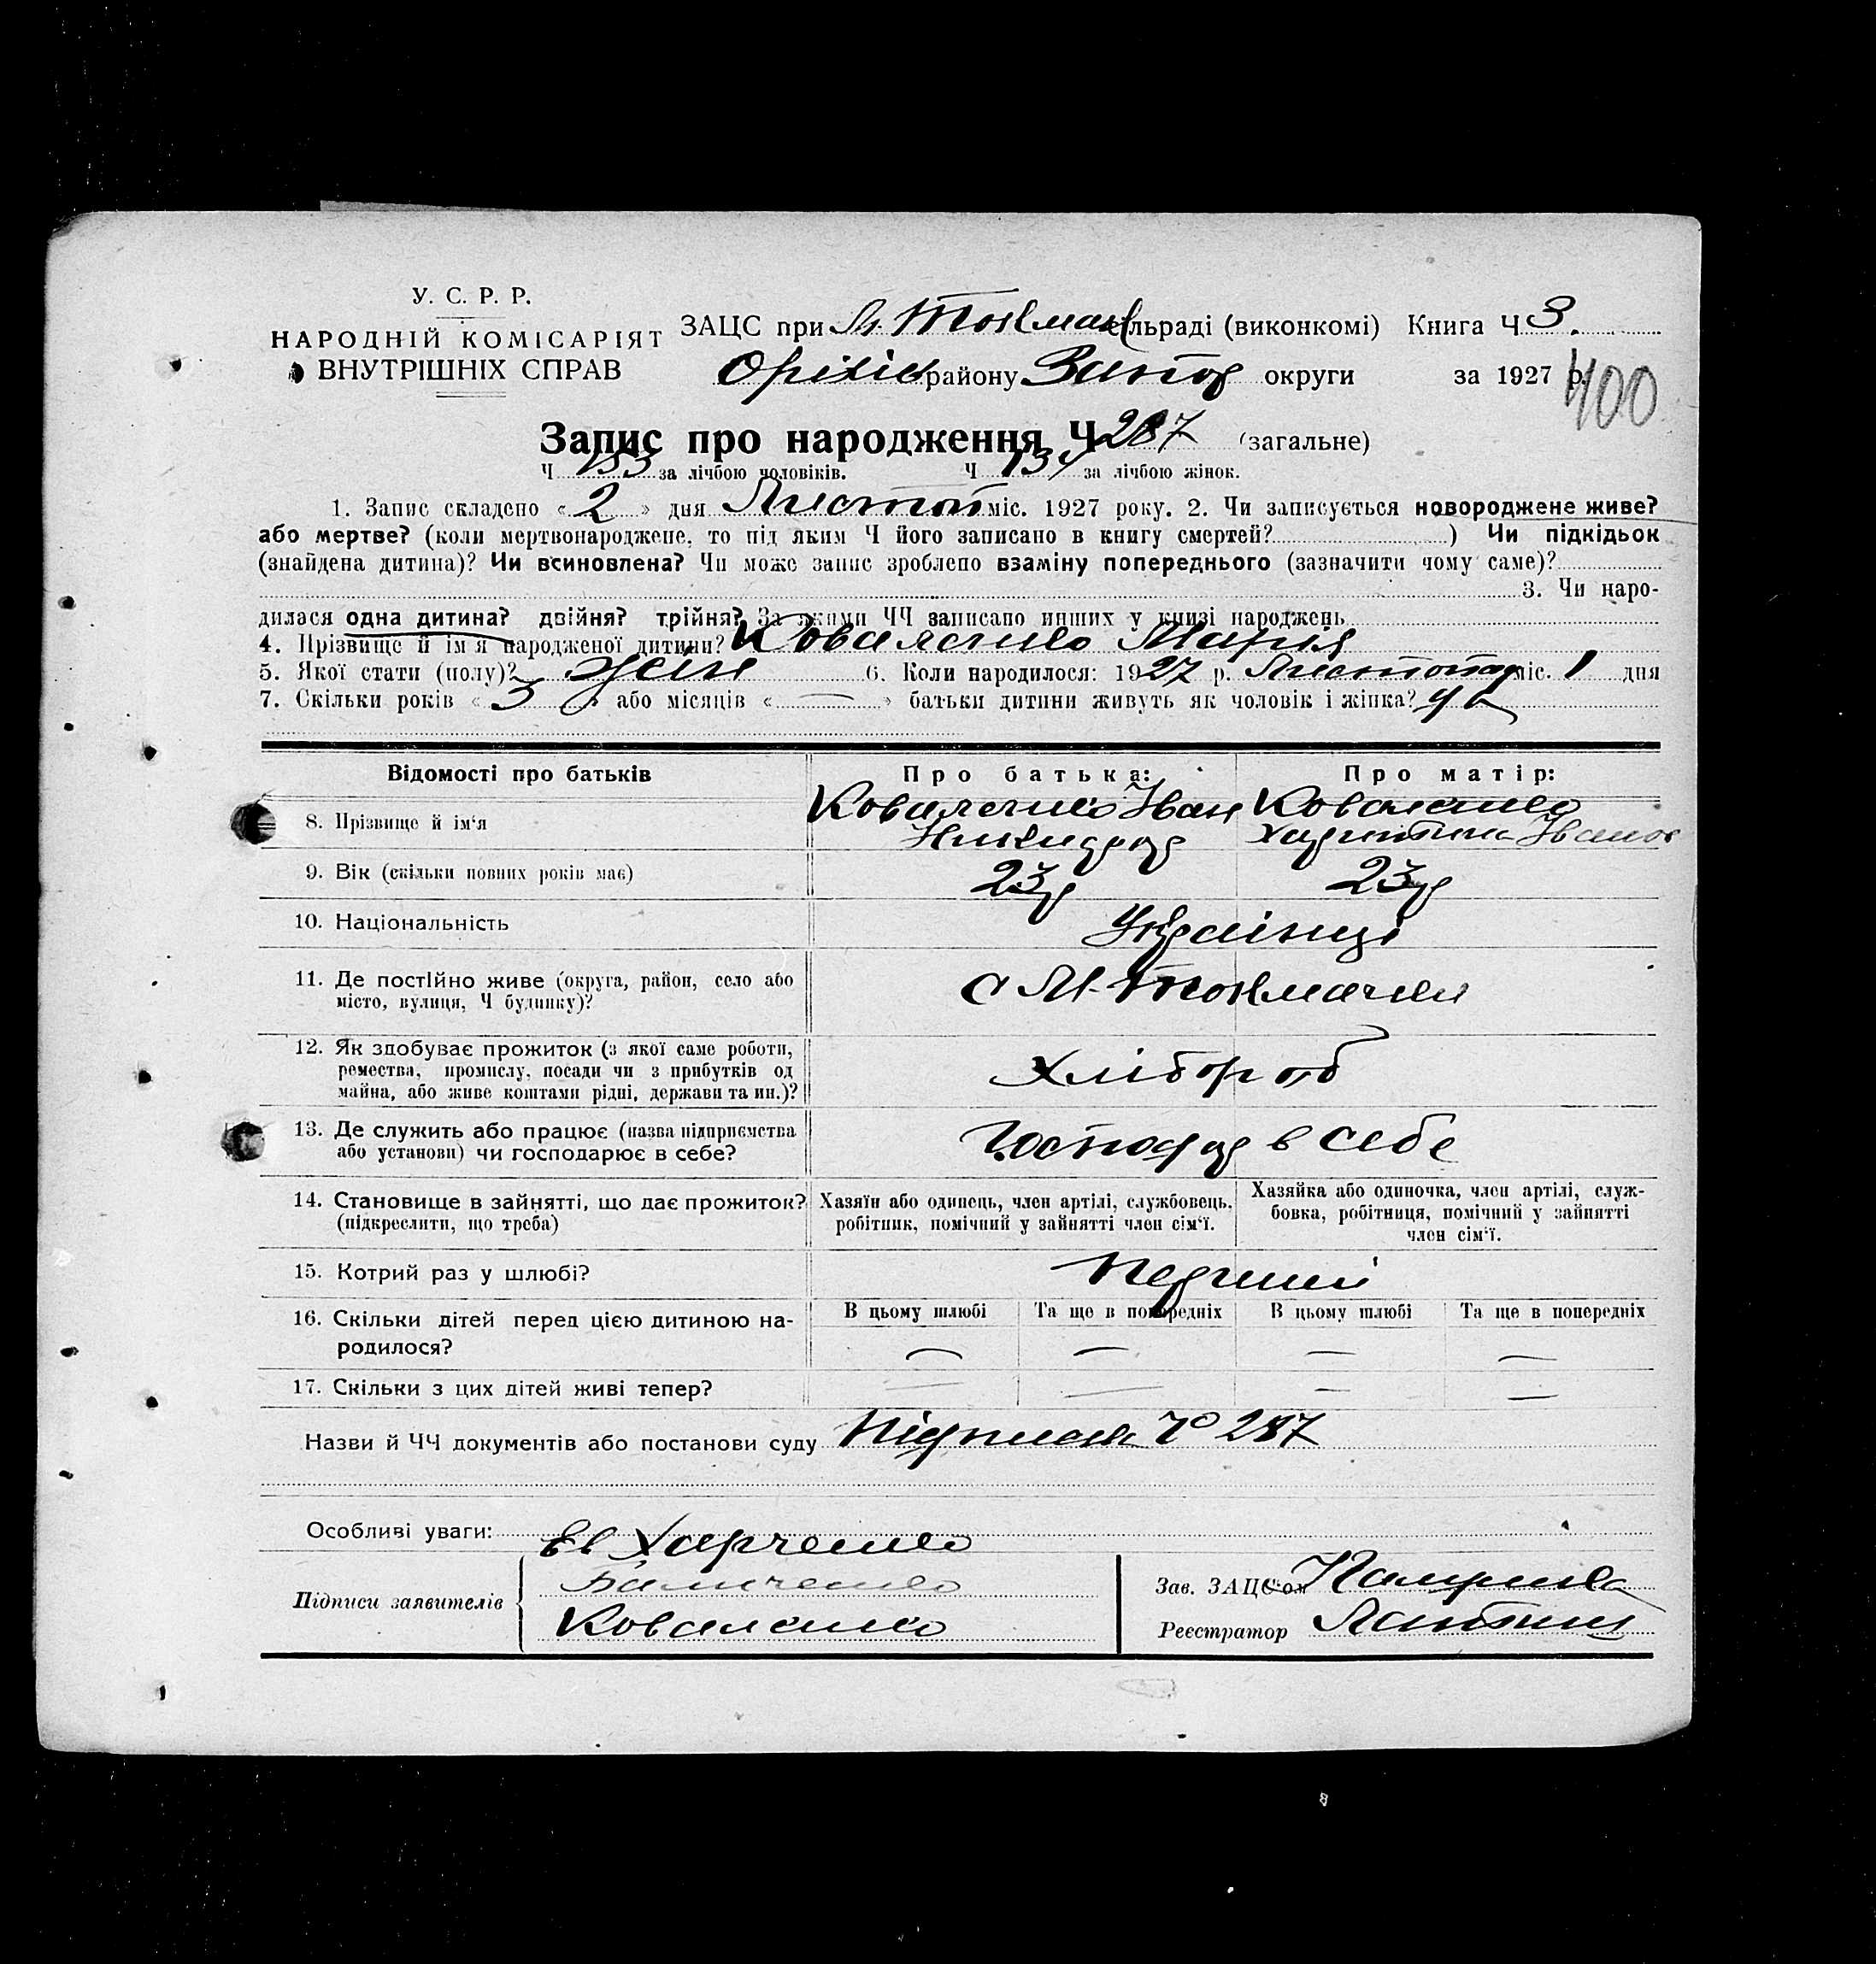 У. С. Р. Р.
НАРОДНІЙ КОМІСАРІЯТ
ВНУТРІШНІХ СПРАВ
ЗАЦС при М. Токмач сільраді (виконкомі) Книга Ч 3.
Оріхів району Запор округи за 1927 р.
400
Запис про народження Ч 287 (загальне)
Ч 153 за лічбою чоловіків. Ч 134 за лічбою жінок.
1. Запис складено « 2 » дня Листоп міс. 1927 року. 2. Чи записується новороджене живе?
або мертве? (коли мертвонароджене, то під яким Ч його записано в книгу смертей? ) Чи підкідьок
(знайдена дитина)? Чи всиновлена? Чи може запис зроблено взаміну попереднього (зазначити чому саме)?
3. Чи наро-
дилася одна дитина? двійня? трійня? За якими ЧЧ записано инших у книзі народжень
4. Прізвище й ім'я народженої дитини? Коваленко Марія
5. Якої стати (полу)? жін 6. Коли народилося: 1927 р. Листопад міс. 1 дня
7. Скільки років « 3 » або місяців « — » батьки дитини живуть як чоловік і жінка?
Відомості про батьків Про батька: Про матір:
8. Прізвище й ім'я Коваленко Іван Коваленко
Никидор Харитина Іванов
9. Вік (скільки повних років має) 23 р 23 р
10. Національність Українці
11. Де постійно живе (округа, район, село або
місто, вулиця, Ч будинку)? с М-Токмачки
12. Як здобуває прожиток (з якої саме роботи,
ремества, промислу, посади чи з прибутків од
майна, або живе коштами рідні, держави та ин.)? Хлібороб
13. Де служить або працює (назва підприємства
або установи) чи господарює в себе? Господар в себе
14. Становище в зайнятті, що дає прожиток?
(підкреслити, що треба)
Хазяїн або одинець, член артілі, службовець,
робітник, помічний у зайнятті член сім'ї.
Хазяйка або одиночка, член артілі, служ-
бовка, робітниця, помічний у зайнятті
член сім'ї.
15. Котрий раз у шлюбі? Перший
16. Скільки дітей перед цією дитиною на-
родилося?
В цьому шлюбі Та ще в попередніх В цьому шлюбі Та ще в попередніх
— — — —
17. Скільки з цих дітей живі тепер? — — — —
Назви й ЧЧ документів або постанови суду Підписка Ч 287
Особливі уваги:
Підписи заявителів
Харченко
Коваленко
Зав. ЗАЦС'ом
Реєстратор